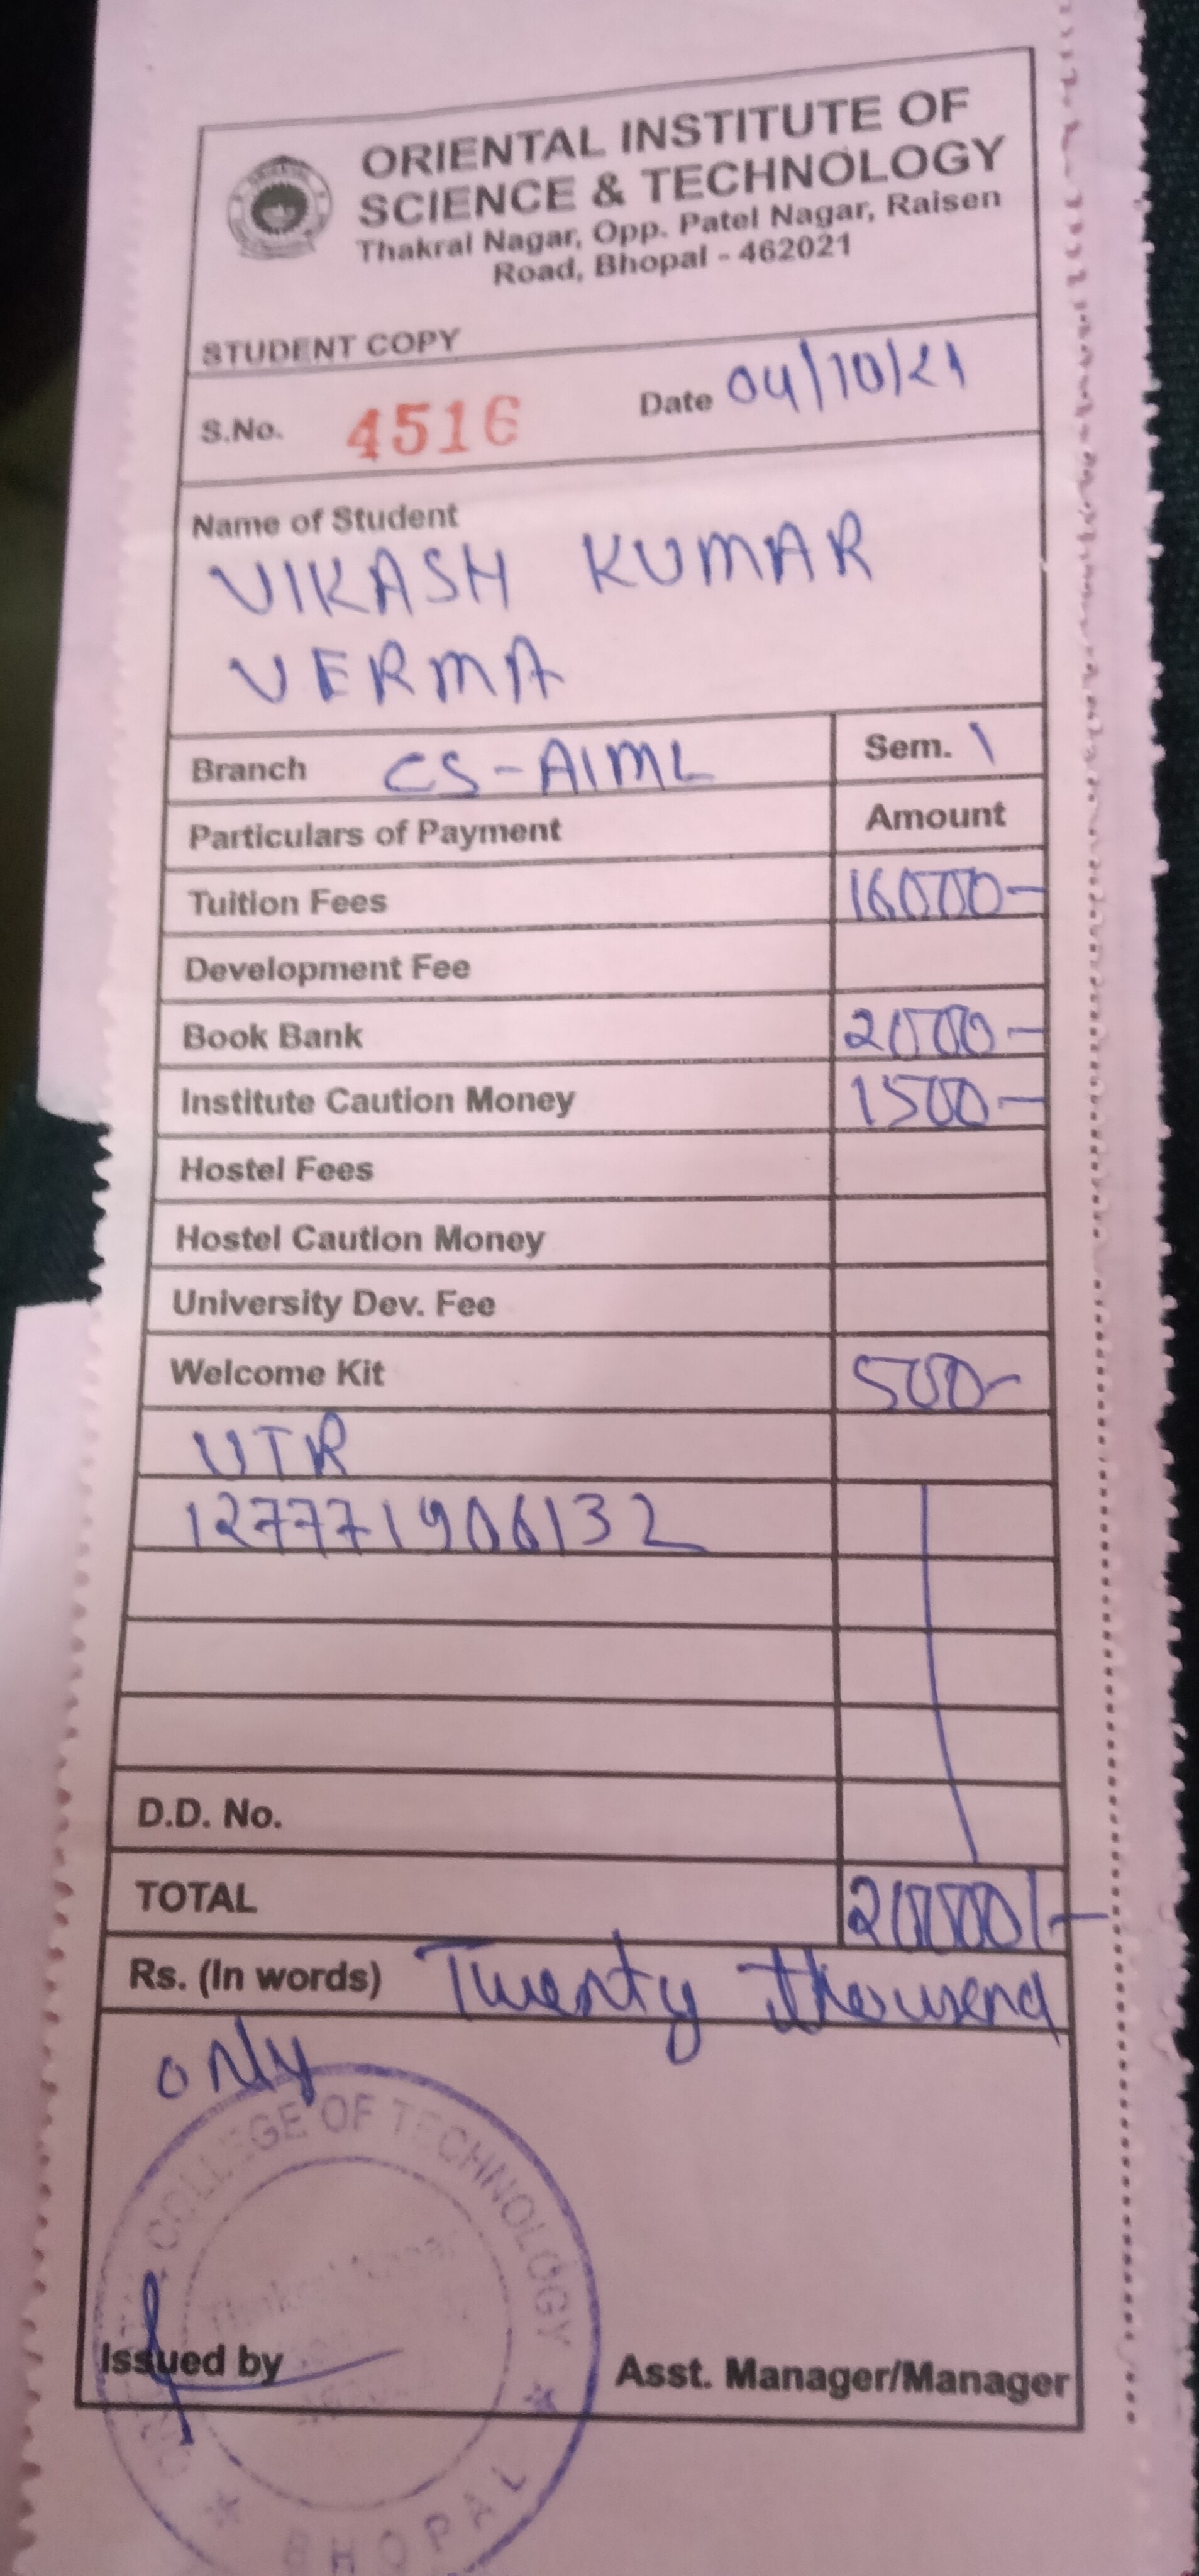 ORIENTAL INSTITUTE OF
SCIENCE & TECHNOLOGY
Thakral Nagar, Opp. Patel Nagar, Raisen
Road, Bhopal - 462021
STUDENT COPY
S.No. 4516 Date 04/10/21
Name of Student
VIKASH KUMAR
VERMA
Branch CS-AIML Sem. 1
Particulars of Payment Amount
Tuition Fees 16000-
Development Fee
Book Bank 2000-
Institute Caution Money 1500-
Hostel Fees
Hostel Caution Money
University Dev. Fee
Welcome Kit 500-
UTR
127771906132
D.D. No.
TOTAL 20000/-
Rs. (In words) Twenty thousend
only
COLLEGE OF TECHNOLOGY
Issued by Asst. Manager/Manager
BHOPAL